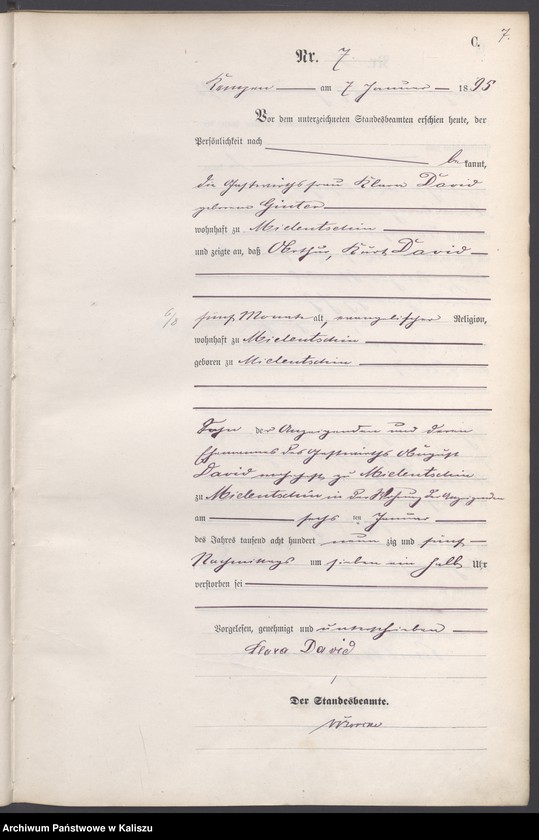 7.
C.
Nr. 7
Kempen am 7 Januar 1895
Vor dem unterzeichneten Standesbeamten erschien heute, der
Persönlichkeit nach
bekannt,
die Gastwirthsfrau Klara David
geborene Ginter
wohnhaft zu Mielentschin
und zeigte an, daß Arthur, Kurt, David
6/8
fünf Monate alt, evangelischer Religion,
wohnhaft zu Mielentschin
geboren zu Mielentschin
Sohn der Anzeigenden und deren
Ehemannes des Gastwirths August
David wohnhaft zu Mielentschin
zu Mielentschin in der Wohnung der Anzeigenden
am sechsten Januar
des Jahres tausend acht hundert neunzig und fünf
Nachmittags um sieben ein halb Uhr
verstorben sei
Vorgelesen, genehmigt und unterschrieben
David
Der Standesbeamte.
Archiwum Państwowe w Kaliszu